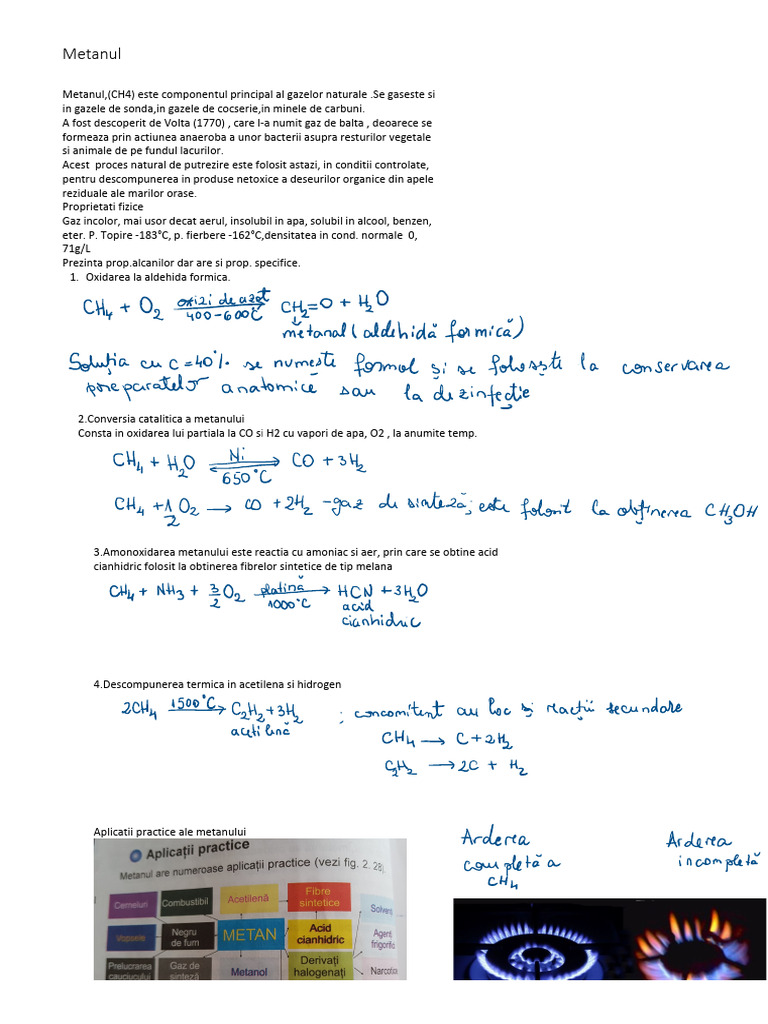 Metanul
Metanul,(CH4) este componentul principal al gazelor naturale .Se gaseste si
in gazele de sonda,in gazele de cocserie,in minele de carbuni.
A fost descoperit de Volta (1770) , care l-a numit gaz de balta , deoarece se
formeaza prin actiunea anaeroba a unor bacterii asupra resturilor vegetale
si animale de pe fundul lacurilor.
Acest  proces natural de putrezire este folosit astazi, in conditii controlate,
pentru descompunerea in produse netoxice a deseurilor organice din apele
reziduale ale marilor orase.
Proprietati fizice
Gaz incolor, mai usor decat aerul, insolubil in apa, solubil in alcool, benzen,
eter. P. Topire -183°C, p. fierbere -162°C,densitatea in cond. normale  0,
71g/L
Prezinta prop.alcanilor dar are si prop. specifice.
1. Oxidarea la aldehida formica.
CH₄ + O₂ oxizi de azot 400-600°C → CH₂=O + H₂O
↓ metanal (aldehidă formică)
Soluția cu c=40% se numește formol și se folosește la conservarea
preparatelor anatomice sau la dezinfecție
2.Conversia catalitica a metanului
Consta in oxidarea lui partiala la CO si H2 cu vapori de apa, O2 , la anumite temp.
CH₄ + H₂O ⇌ Ni 650°C CO + 3H₂
CH₄ + 1/2 O₂ → CO + 2H₂ - gaz de sinteză; este folosit la obținerea CH₃OH
3.Amonoxidarea metanului este reactia cu amoniac si aer, prin care se obtine acid
cianhidric folosit la obtinerea fibrelor sintetice de tip melana
CH₄ + NH₃ + 3/2 O₂ platină 1000°C → HCN + 3H₂O
acid
cianhidric
4.Descompunerea termica in acetilena si hidrogen
2CH₄ 1500°C → C₂H₂ + 3H₂ ; concomitent au loc și reacții secundare
acetilenă
CH₄ → C + 2H₂
C₂H₂ → 2C + H₂
Aplicatii practice ale metanului
Aplicații practice
Metanul are numeroase aplicații practice (vezi fig. 2.28).
Cerneluri Combustibil Acetilenă Fibre sintetice Solvenți
Vopsele Negru de fum METAN Acid cianhidric Agenți frigorifici
Prelucrarea cauciucului Gaz de sinteză Metanol Derivați halogenați Narcotice
Arderea
completă a
CH₄
Arderea
incompletă